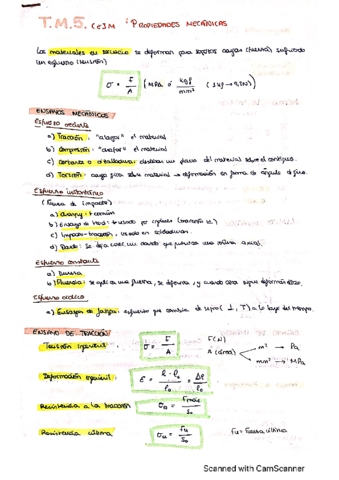 T.M.5. CeIM : PROPIEDADES MECÁNICAS
Los materiales en servicio se deforman para soportar cargas (fuerza) sufriendo
un esfuerzo (tensión)
σ = F/A (MPa ó kgf/mm² (1kgf → 9,8N))
ENSAYOS MECÁNICOS:
a) Tracción: "alargar" el material
b) Compresión: "acortar" el material
c) Cortante o cizalladura: deslizan un plano del material sobre el contiguo.
d) Torsión: carga gira sobre material → deformación en forma de ángulo de giro.
Esfuerzo instantáneo
(Fuerza de impacto)
a) Charpy: + común
c) Impacto-tracción, usado en soldaduras.
d) Dardo: Se deja caer un dardo que
Esfuerzo constante
a) Dureza
b) Fluencia: se aplica una fuerza, se deforma, y cuando
Esfuerzo cíclico
a) Ensayos de fatiga: esfuerzo que cambia de signo (⊥, T) a lo largo del tiempo.
ENSAYO DE TRACCIÓN:
Tensión ingenieril: σ = F/A F(N) A (área) m² → Pa mm² → MPa
Deformación ingenieril: ε = (l - l₀)/l₀ = Δl/l₀
Resistencia a la tracción σ = Fmax/S₀
Resistencia última: σu = Fu/S₀ Fu = Fuerza última
Scanned with CamScanner